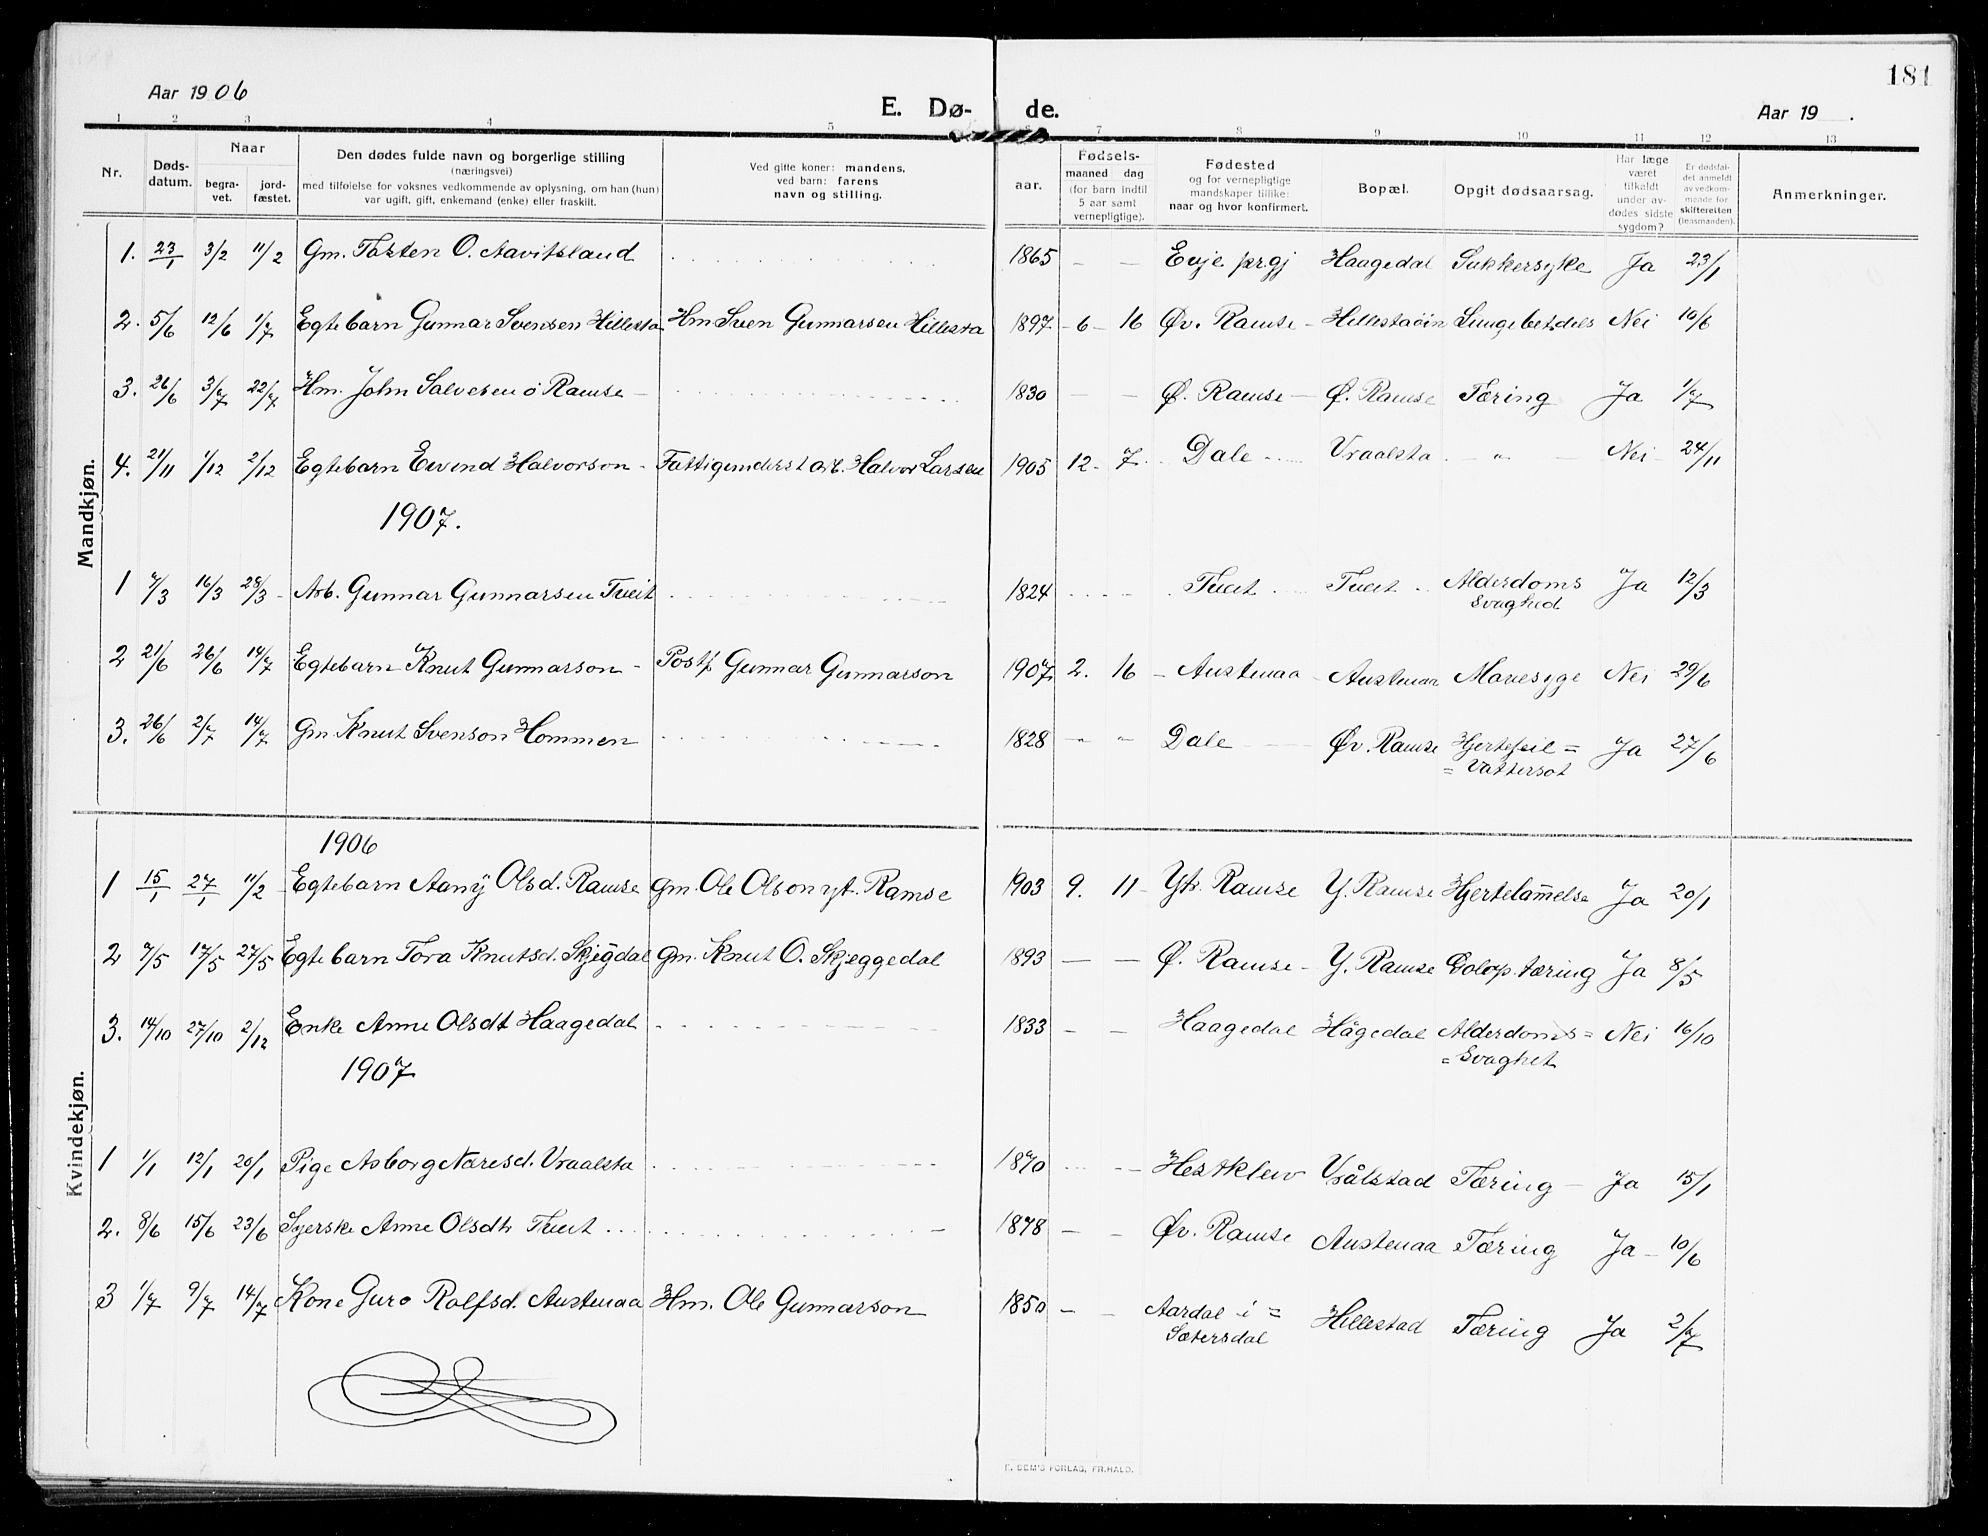 181
Aar 1906
E. Dø- de.
Aar 19 .
1 2 3 4 5 6 7 8 9 10 11 12 13
Nr. Døds-datum. Naar begra-vet. jord-fæstet. Den dødes fulde navn og borgerlige stilling (næringsvei) med tilføielse for voksnes vedkommende av oplysning, om han (hun) var ugift, gift, enkemand (enke) eller fraskilt. Ved gifte koner: mandens, ved barn: farens navn og stilling. Fødsels- aar. maaned dag (for barn indtil 5 aar samt vernepligtige). Fødested og for vernepligtige mandskaper tillike: naar og hvor konfirmert. Bopæl. Opgit dødsaarsag. Har læge været tilkaldt under av-dødes sidste sygdom? Er dødsfal-det anmeldt av vedkom-mende for skifteretten (lensmanden). Anmerkninger.
Mandkjøn.
1. 23/1 3/2 11/2 Gm. Tosten O. Aavitsland 1865 – – Evje prgj Haagedal Sukkersyke Ja 23/1
2. 5/6 12/6 1/7 Egtebarn Gunnar Svensen Hillesta Hm Sven Gunnarsen Hillesta 1897 – 6 – 16 Øv. Ramse – Hillestaøin Lungebet.dels Nei 10/6
3. 26/6 3/7 22/7 Hm. John Salvesen ø Ramse – 1830 – – Ø. Ramse – Ø. Ramse Tæring Ja 1/7
4. 21/11 1/12 2/12 Egtebarn Eivind Halvorson – Fattigunderst. arb. Halvor Larsen 1905 12 - 7 Dale Vraalsta – " – Nei – 24/11
1907.
1 7/3 16/3 28/3 – Arb. Gunnar Gunnarsen Tveit 1824 Tveit Tveit Alderdoms Ja 12/3
Svaghed
2 21/6 26/6 14/7 Egtebarn Knut Gunnarson – Postf Gunnar Gunnarson 1907 2. 16 – Austenaa – Austenaa Mavesyge Nei 29/6
3. 26/6 2/7 14/7 Gm. Knut Svenson Hommen 1828 " " Dale Øv. Ramse Hjertefeil = Ja 27/6
= Vattersot
Kvindekjøn.
1906
1 15/1 27/1 11/2 Egtebarn Aany Olsd. Ramse Gm. Ole Olson yt. Ramse 1903 9. 11 – Ytr. Ramse Y. Ramse Hjertelam̄else Ja 20/1
2 7/5 17/5 27/5 Egtebarn Tora Knutsd. Skjeḡdal Gm. Knut O. Skjeggedal 1893 – – Ø. Ramse – Y. Ramse Golop. tæring Ja 8/5
3. 14/10 27/10 2/12 Enke Anne Olsdt Haagedal 1833 – – Haagedal Hågedal Alderdoms = Nei 16/10
= Svaghet
1907
1 1/1 12/1 20/1 Pige Asborg Næresd. Vraalsta 1870 Hestklev Vrålstad Tæring – Ja 15/1
2. 8/6 15/6 23/6 Syerske Anne Olsdtr Tveit 1878 – – Øv. Ramse Austenaa Tæring Ja – 10/6
3 1/7 9/7 14/7 Kone Guro Rolfsd. Austenaa Hm. Ole Gunnarson 1850 – – Aardal i = Hillestad Tæring Ja 2/7
Sætersdal
E. SEM'S FORLAG, FR.HALD.